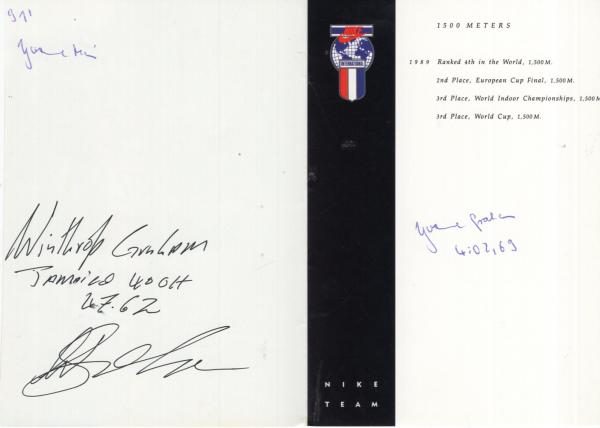 91'
Winthrop Graham
Jamaica 400H
47.62
INTERNATIONAL
NIKE
TEAM
1500 METERS
1989 Ranked 4th in the World, 1,500M.
2nd Place, European Cup Final, 1,500M.
3rd Place, World Indoor Championships, 1,500M
3rd Place, World Cup, 1,500M.
Yvonne Graham
4:02,69